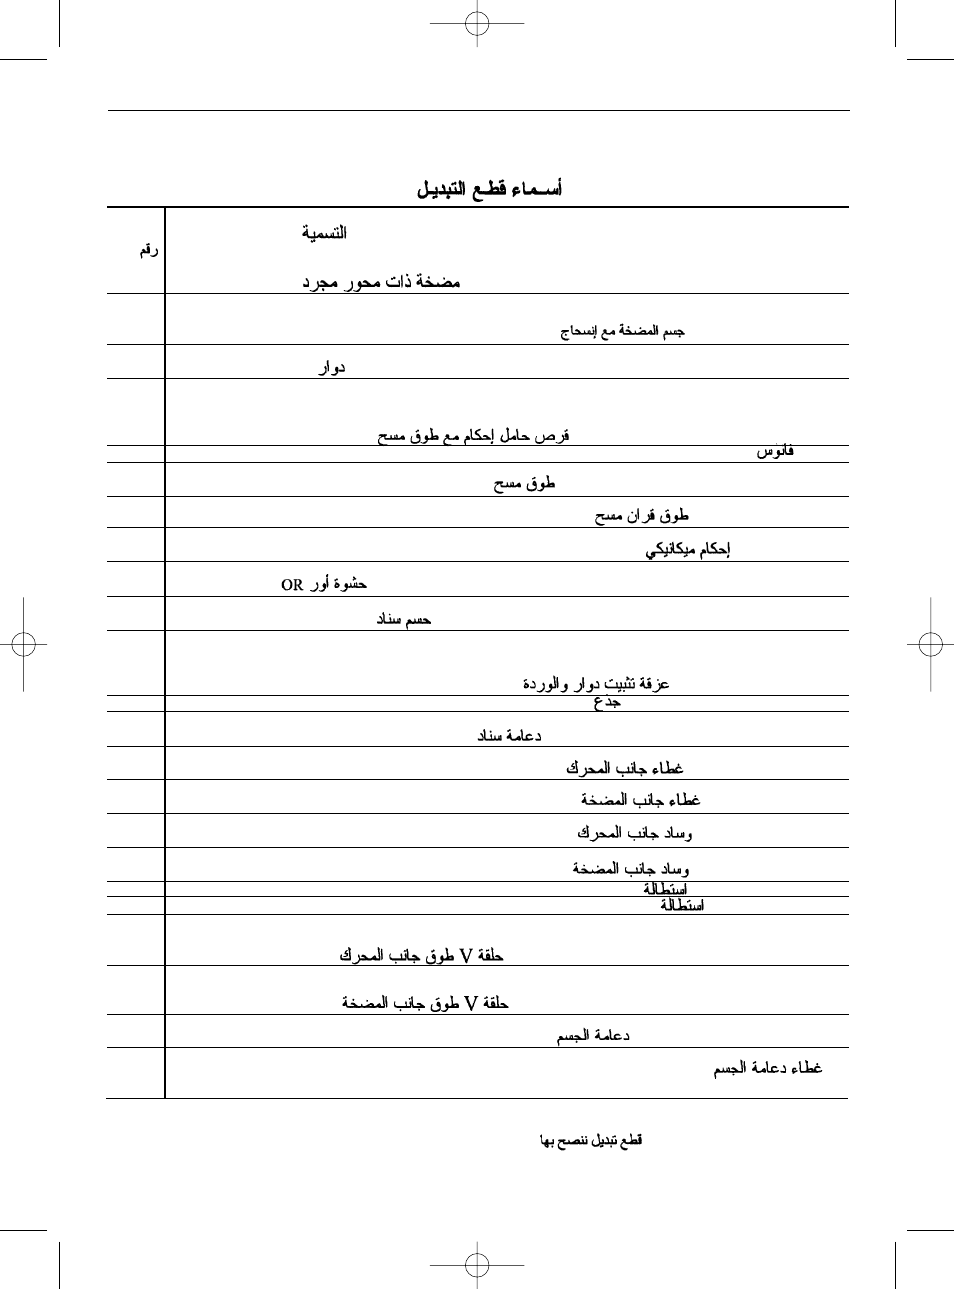 أسماء قطع التبديل
التسمية
رقم
مضخة ذات محور مجرد
جسم المضخة مع إنسحاج
دوار
قرص حامل إحكام مع طوق مسح
فانوس
طوق مسح
طوق قران مسح
إحكام ميكانيكي
حشوة أور OR
حسم سناد
عزقة تثبيت دوار والوردة
جذع
دعامة سناد
غطاء جانب المحرك
غطاء جانب المضخة
وساد جانب المحرك
وساد جانب المضخة
استطالة
استطالة
حلقة V طوق جانب المحرك
حلقة V طوق جانب المضخة
دعامة الجسم
غطاء دعامة الجسم
قطع تبديل ننصح بها